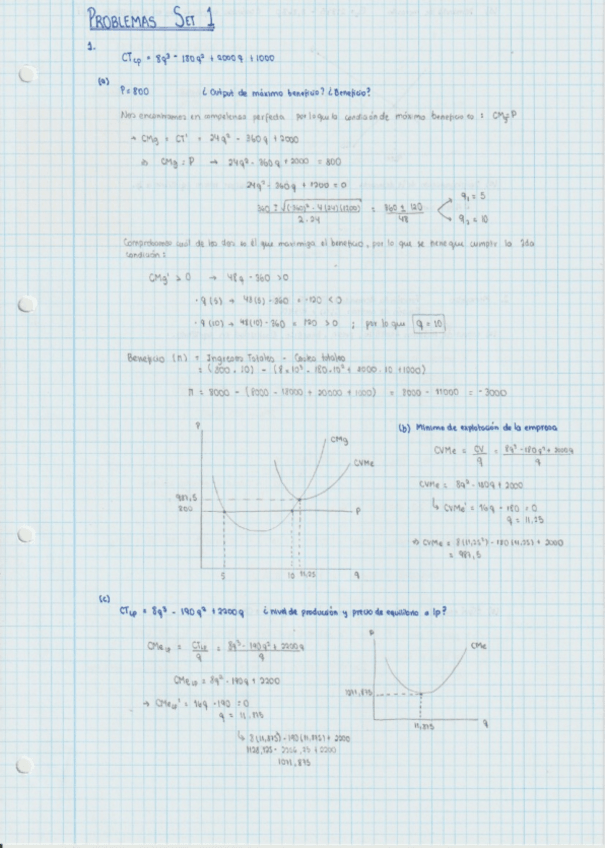 PROBLEMAS SET 1
1.
CTcp = 8q³ - 180q² + 2000q + 1000
(a)
P = 800 ¿Output de máximo beneficio? ¿Beneficio?
Nos encontramos en competencia perfecta por lo que la condición de máximo beneficio es : CMg = P
→ CMg = CT' = 24q² - 360q + 2000
CMg = P → 24q² - 360q + 2000 = 800
24q² - 360q + 1200 = 0
360 ± √(-360)² - 4(24)(1200) / 2·24 = 360 ± 120 / 48
q₁ = 5
q₂ = 10
Comprobamos cuál de los dos es el que maximiza el beneficio, por lo que se tiene que cumplir la 2da
condición:
CMg' > 0 → 48q - 360 > 0
· q(5) → 48(5) - 360 = -120 < 0
· q(10) → 48(10) - 360 = 120 > 0 ; por lo que q = 10
Beneficio (π) = Ingresos Totales - Costes totales
= (800 · 10) - (8·10³ - 180·10² + 2000·10 + 1000)
π = 8000 - (8000 - 18000 + 20000 + 1000) = 8000 - 11000 = -3000
P
CMg
CVMe
987,5
800
P
5 10 11,25 q
(b) Mínimo de explotación de la empresa
CVMe = CV / q = 8q³ - 180q² + 2000q / q
CVMe = 8q² - 180q + 2000
↳ CVMe' = 16q - 180 = 0
q = 11,25
⇒ CVMe = 8(11,25²) - 180(11,25) + 2000
= 987,5
(c)
CTLp = 8q³ - 190q² + 2200q ¿nivel de producción y precio de equilibrio a lp?
CMeLp = CTLp / q = 8q³ - 190q² + 2200q / q
CMeLp = 8q² - 190q + 2200
→ CMeLp' = 16q - 190 = 0
q = 11,875
↳ 8(11,875) - 190(11,875) + 2200
1128,125 - 2256,25 + 2200
1071,875
P
CMe
1071,875
11,875 q